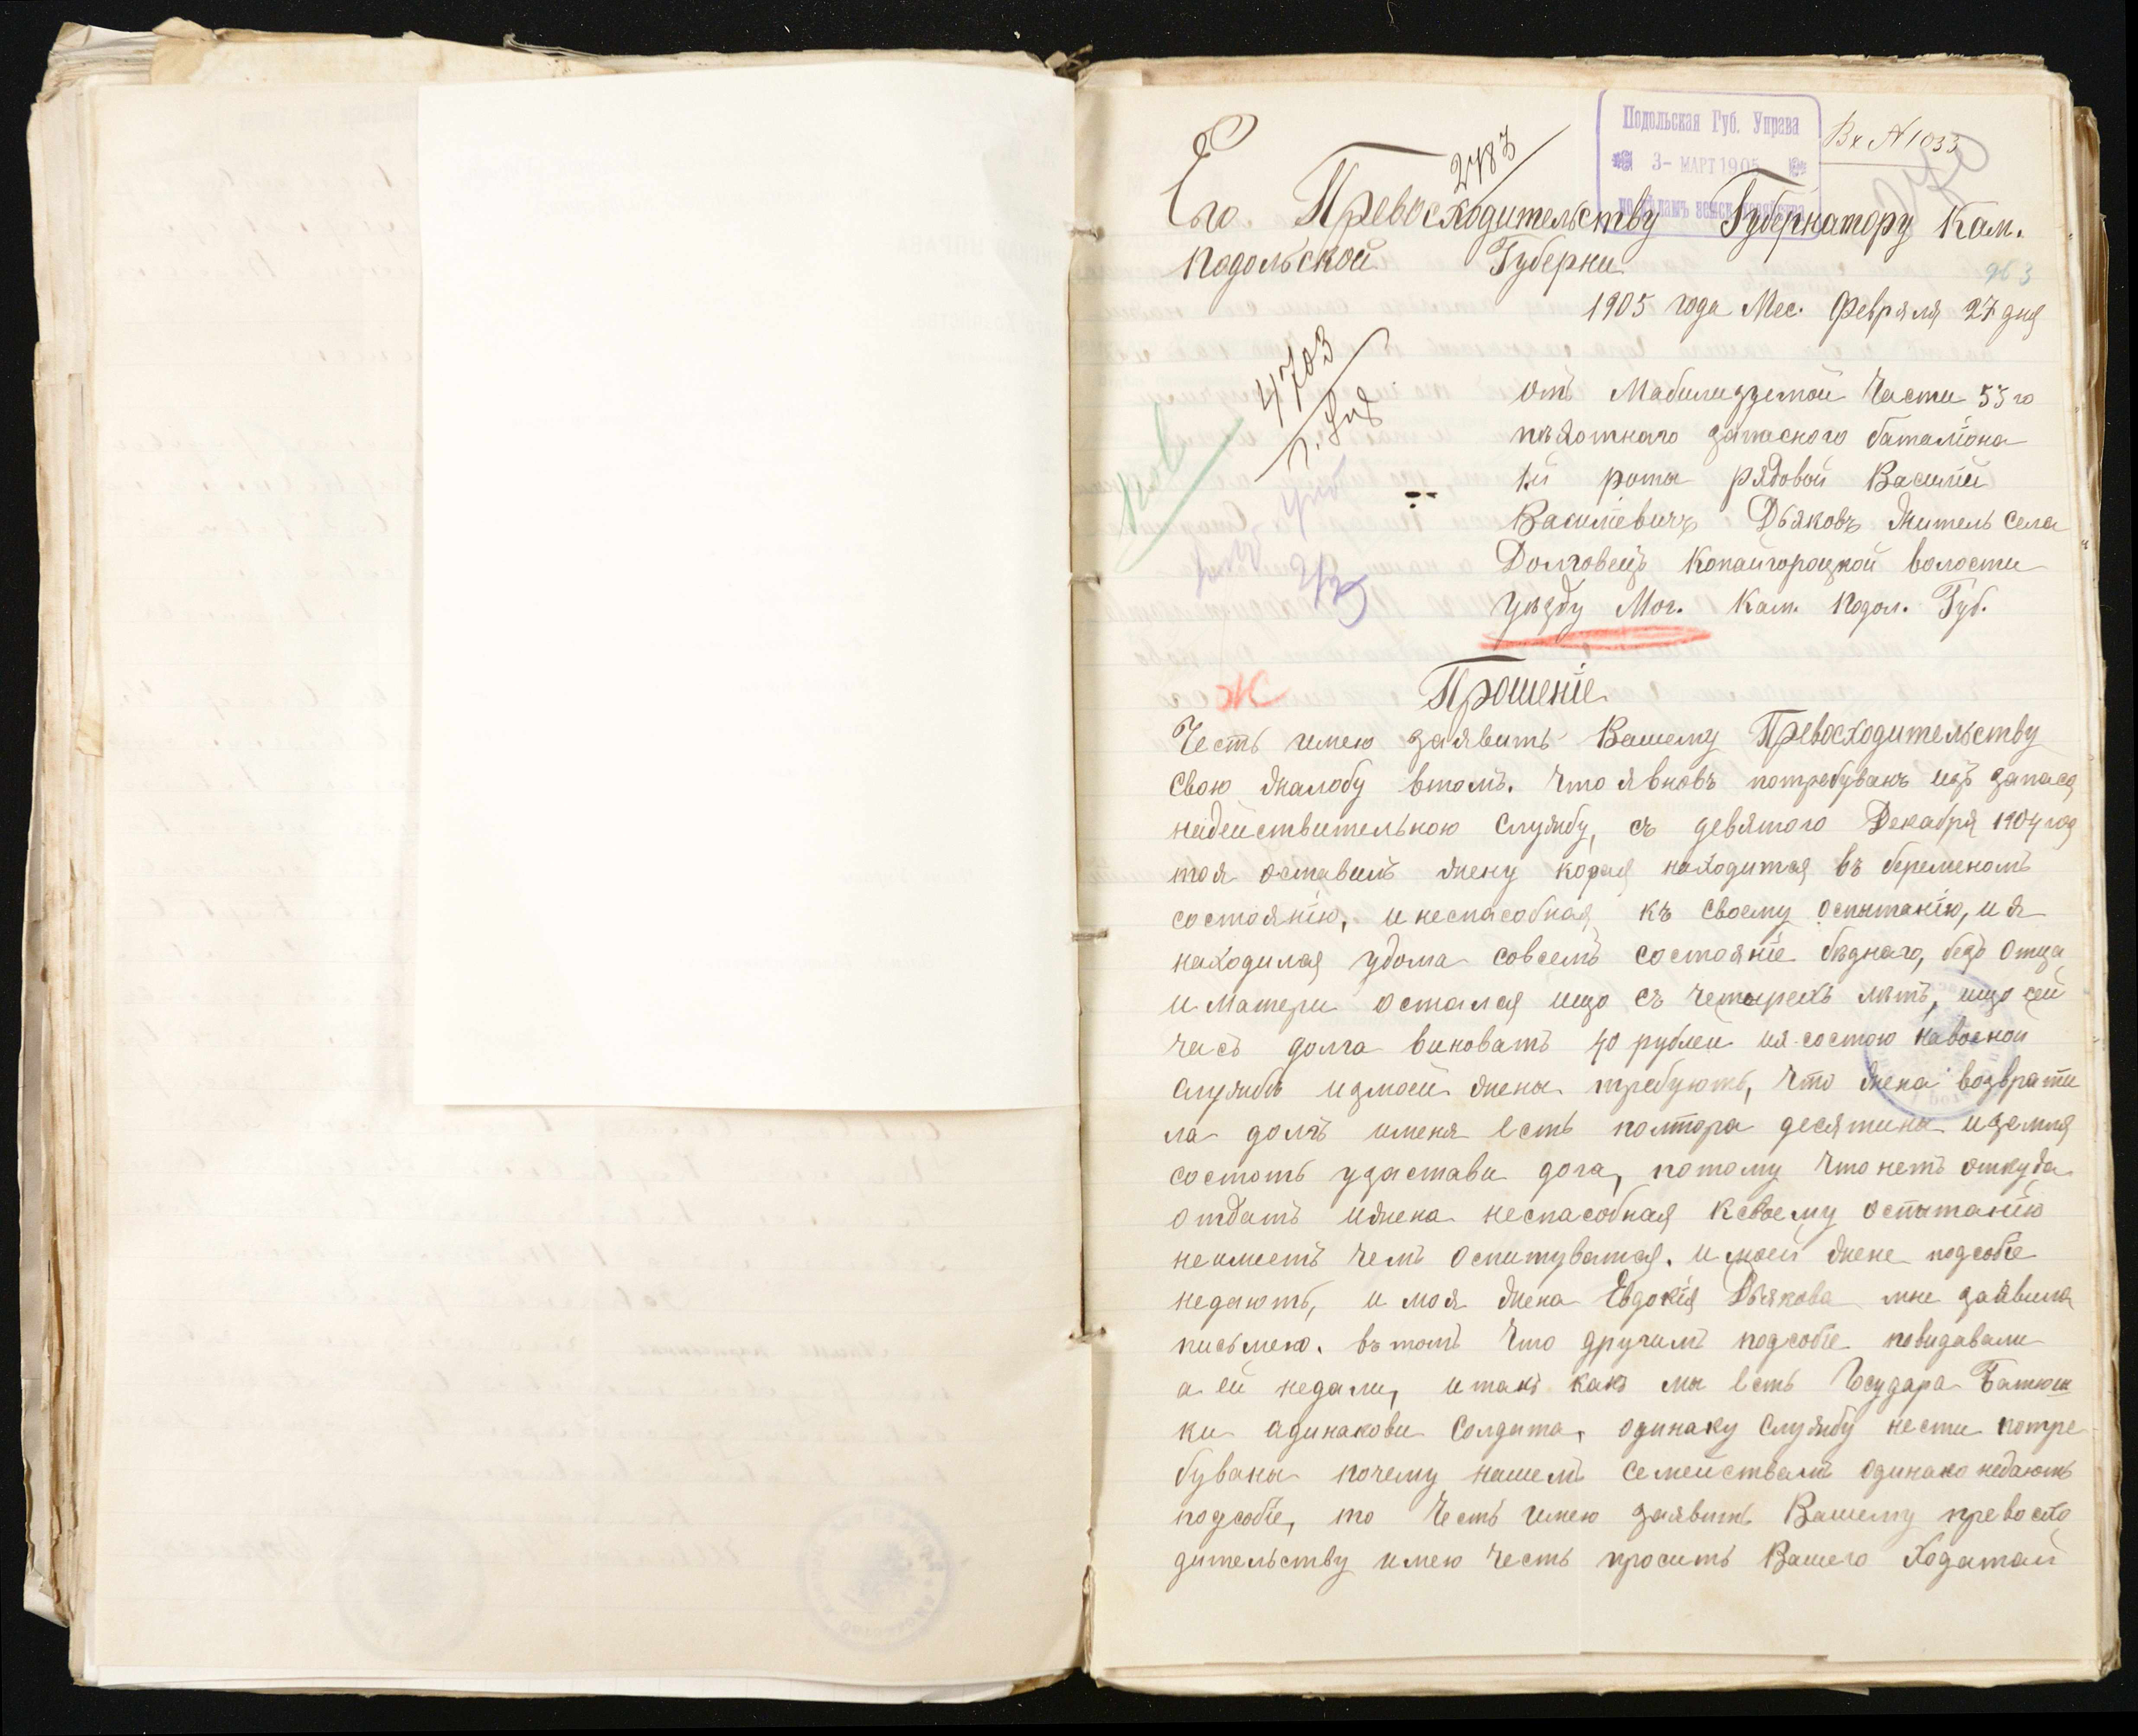 Подольская Губ. Управа
3- МАРТ 1905
Вх № 1033
2783
Его Превосходительству Губернатору Кам.
Подольской Губерни
963
1905 года Мес. Февряля 27 дня
4703
отъ Мабилизуемой Части 53 го
пѣхотнаго запасного баталіона
1й роты рядовой Василій
Василіевичъ Дьяковъ житель села
Долговецъ Копайгороцкой волости
уѣзду Мог. Кам. Подол. Губ.
Ж
Прошеніе
Честь имею заявить Вашему Превосходительству
свою жалобу втомъ. что я вновъ потребуванъ изъ запаса
надействительною Службу, съ девятого Декабря 1904 год
тоя оставилъ жену корая находится въ беременомъ
состоянію, и неспасобная къ своему оспытанію, и я
находился удома совсемъ состояніе бѣднаго, безъ отца
и матери остался ищо съ четырехъ лѣтъ, ищо сей
часъ долга виноватъ 40 рублей ия состою навоенои
службѣ измоей жены требуютъ, что жена возврати
ла долгъ именя есть полтора десятины иземля
состоть узастави дога, потому что нетъ откуда
отдать ижена неспасобная ксвоему оспытанію
неимеетъ чемъ оспитуватся. и моей жене подсобіе
недаютъ, и моя жена Евдокія Дьякова мне заявила
письмею. въ томъ что другимъ подсобіе повидавали
а ей недали, итакъ какъ мы есть Государа Батюш
ки адинакови Солдата, одинаку службу нести потре
буваны почему нашемъ семействамъ одинако недаютъ
подсобіе, то Честь имею заявить Вашему превосхо
дительству имею честь просить Вашего Ходатай